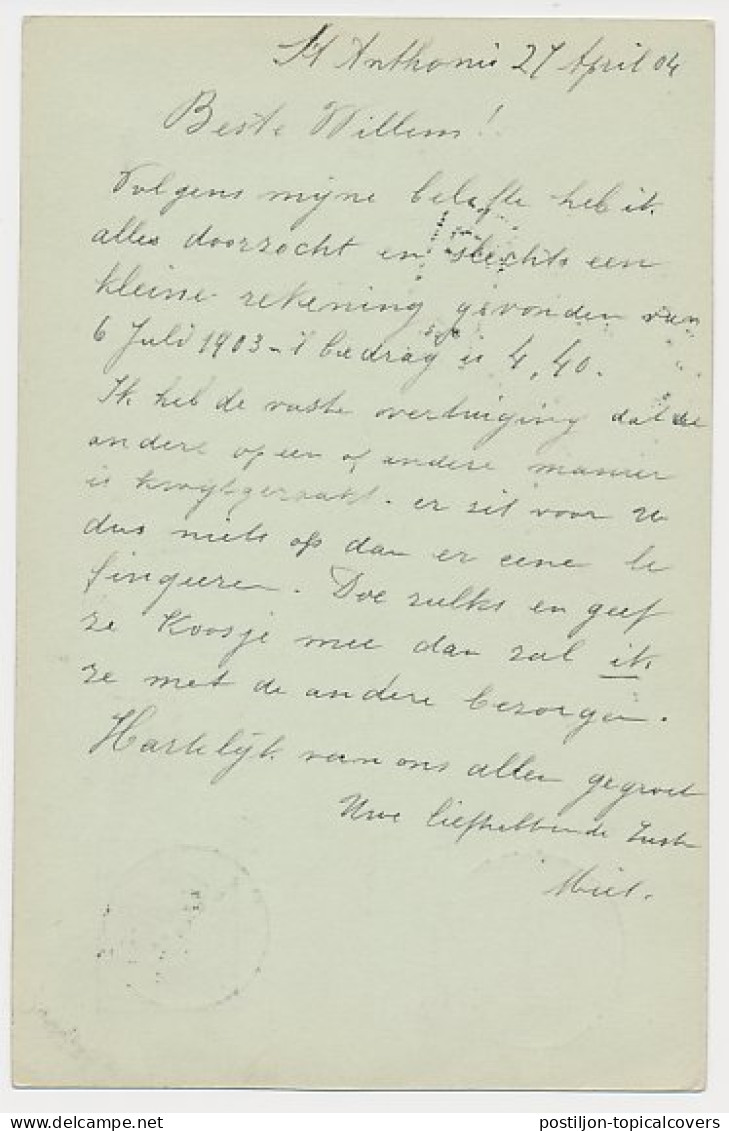 St Anthonis 27 April 04
Beste Willem!
Volgens mijne belofte heb ik
alles doorzocht en slechts een
kleine rekening gevonden van
6 Juli 1903 - 't bedrag is 4,40.
Ik heb de vaste overtuiging dat de
andere op een of andere manier
is kwijtgeraakt. er zit voor u
dus niets op dan er eene te
fingeeren. Doe zulks en geef
ze Koosje mee dan zal ik
ze met de andere bezorgen.
Hartelijk van ons allen gegroet
Uwe liefhebbende Zuster
Miet.
postiljon-topicalcovers